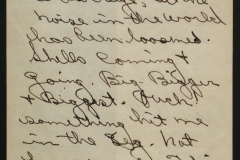 noise in the world
has been loosened.
Shells coming &
Going Big Bigger
& Biggest. Ouch!
something hit me
in the leg. hot